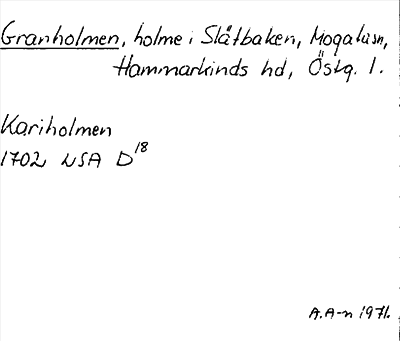 Granholmen, holme i Slätbaken, Mogata sn,
Hammarkinds hd, Östg. l.
Kariholmen
1702 LSA D18
A.A-n 1971.